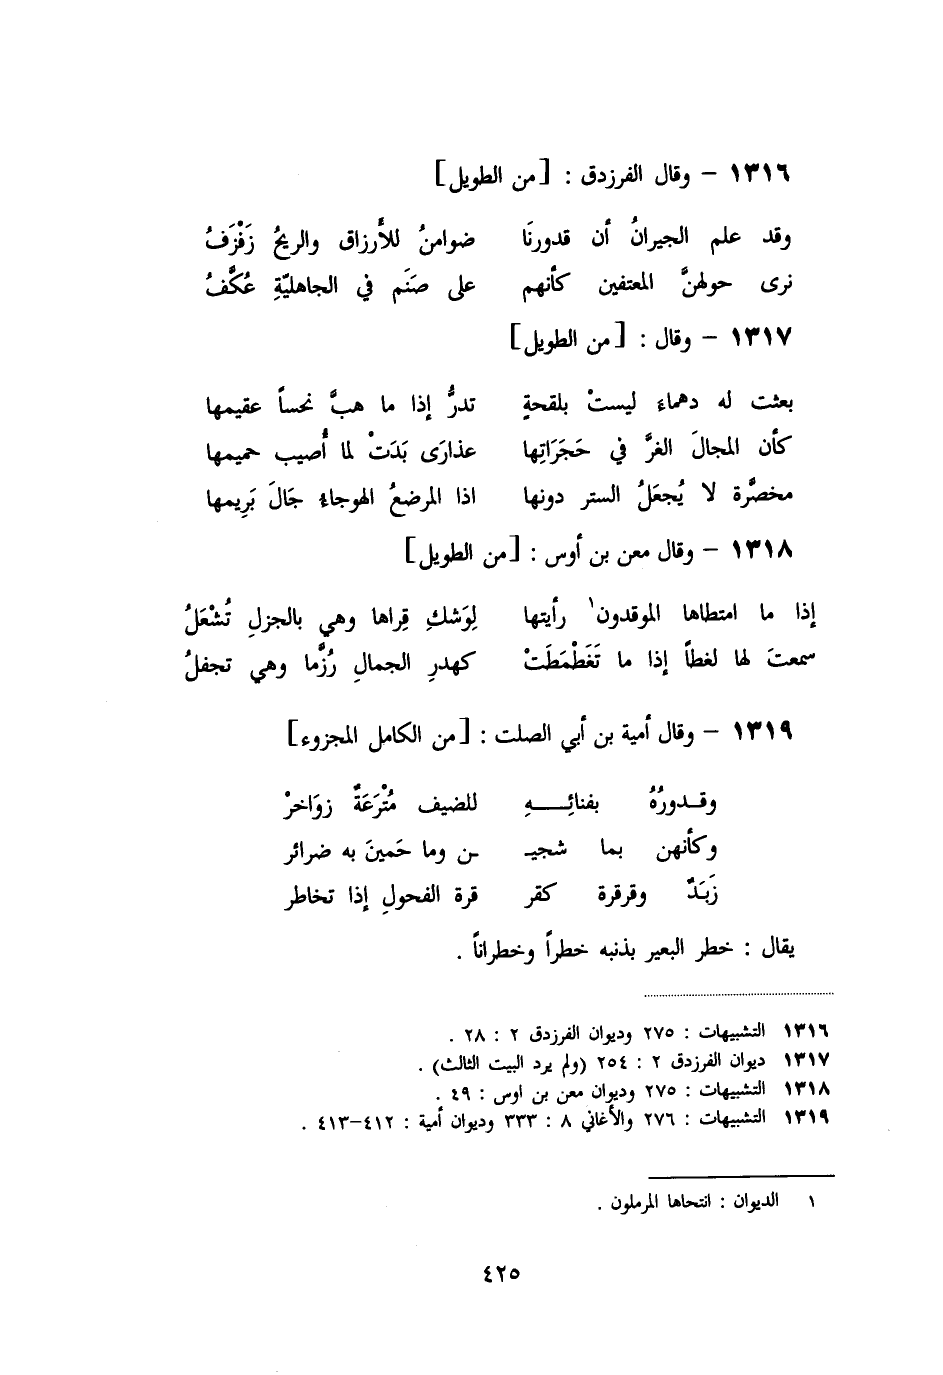 ١٣١٦ – وقال الفرزدق : [من الطويل]
وقد علم الجيرانُ أن قدورنَا ضوامنُ للأرزاق والريحُ زَفْزَفُ
نرى حولهنَّ المعتفين كأنهم على صَنَم في الجاهليّةِ عُكَّفُ
١٣١٧ – وقال : [من الطويل]
بعثت له دهماء ليستْ بلقحةٍ تدرُّ إذا ما هبَّ نحساً عقيمها
كأن المجالَ الغرَّ في حَجَرَاتِها عذارَى بَدَتْ لما أُصيب حميمها
مخصَّرة لا يُجعَلُ الستر دونها اذا المرضعُ الهوجاءُ جَالَ بَرِيمها
١٣١٨ – وقال معن بن أوس : [من الطويل]
إذا ما امتطاها الموقدون١ رأيتها لِوَشكِ قِراها وهي بالجزلِ تُشْعَلُ
سمعتَ لها لغطاً إذا ما تَغَطْمَطَتْ كهدرِ الجمالِ رُزَّما وهي تجفلُ
١٣١٩ – وقال أمية بن أبي الصلت : [من الكامل المجزوء]
وقـدورُهُ بفنائِـــهِ للضيف مُتْرَعَةٌ زوَاخرْ
وكأنهن بما شجيـ ـن وما حَمينَ به ضرائر
زَبَدٌ وقرقرة كقر قرة الفحولِ إذا تخاطر
يقال : خطر البعير بذنبه خطراً وخطراناً .
١٣١٦ التشبيهات : ٢٧٥ وديوان الفرزدق ٢ : ٢٨ .
١٣١٧ ديوان الفرزدق ٢ : ٢٥٤ (ولم يرد البيت الثالث) .
١٣١٨ التشبيهات : ٢٧٥ وديوان معن بن اوس : ٤٩ .
١٣١٩ التشبيهات : ٢٧٦ والأغاني ٨ : ٣٣٣ وديوان أمية : ٤١٢–٤١٣ .
١ الديوان : انتحاها المرملون .
٤٢٥